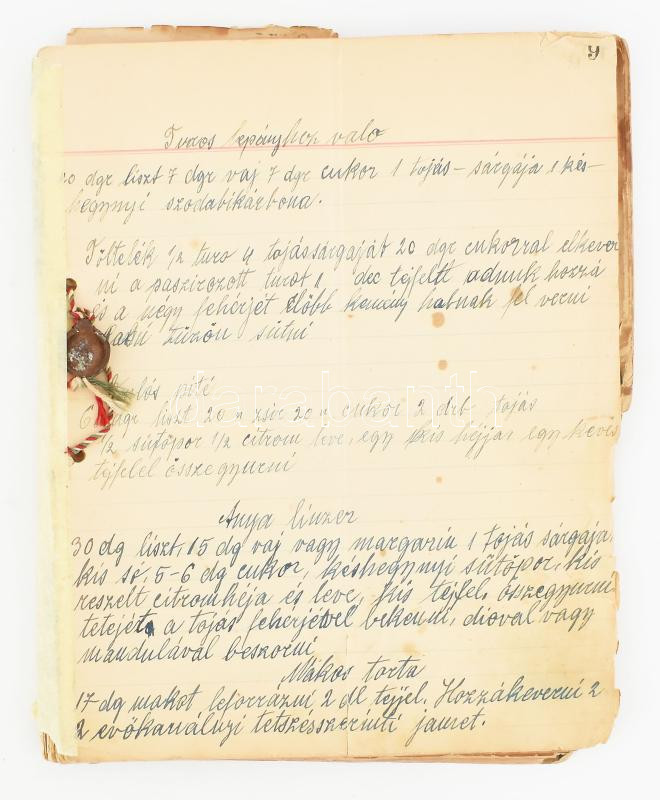 9
Turos lepényhez valo
dgr liszt 7 dgr vaj 7 dgr cukor 1 tojás-sárgája 1 kés-
hegynyi szodabikárbona.
Töltelék 1/2 turo 4 tojássárgáját 20 dgr cukorral elkever
ni a paszirozott turot 1 dec tejfelt adunk hozzá
és a négy fehérjét előbb kemény habnak fel verni
tüzön sütni
pité
liszt 20 " zsir 20 " cukor 2 drb tojás
1/2 sütőpor 1/2 citrom leve, egy kis héjjai egy kevés
tejfelel összegyurni
Anya linzer
30 dg liszt, 15 dg vaj vagy margarin 1 tojás sárgája,
kis só, 5-6 dg cukor, késhegynyi sütőpor, kis
reszelt citromhéja és leve, kis tejfel, összegyurni
tetejét a tojás fehérjével bekenni, dioval vagy
mandulával beszorni
Mákos torta
17 dg makot leforrázni 2 dl tejjel. Hozzákeverni 2
2 evőkanálnyi tetszésszerinti jamet.
darabanth